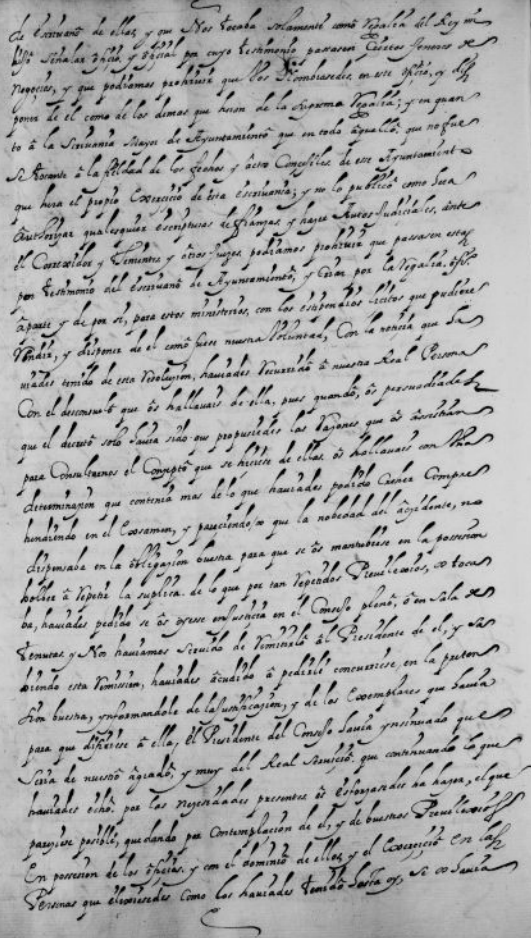 de escrivano de ellas, y que Nos tocava solamente como Regalia del Rey mi
señalar oficio, y oficial por cuyo testimonio passasen Ciertos generos de
negocios, y que podiamos prohivir que los Nombrasedes en este oficio, y dis
poner de el como de los demas que heran de la suprema Regalia; y en quan
to â la Scrivania Mayor de Ayuntamiento que en todo aquello, que no fue
se tocante â la fieldad de los fechos y actos Concegiles de este Ayuntamiento
que hera el propio Exercicio de esta escrivania; y no lo publico como hera
authorizar qualesquier escripturas de fianzas, y hazer Autos Judiciales, ante
el Correxidor y Tenientes y otros Juezes, podiamos prohivir que passasen estas
por testimonio del escrivano de Ayuntamiento, y Criar por la Regalia, ofic.º
âparte y de por si, para estos ministerios, con los estipendios licitos que pudiere
Vender, y disponer de el como fuese nuestra Voluntad, Con la noticia que ha
viades tenido de esta Resolucion, haviades Recurrido â nuestra Real Persona
Con el desconsuelo que ôs hallavais de ella, pues quando, ôs persuadiades
que el decreto solo havia sido que propusiesedes las Razones que ôs assistian
para Consultarnos el Concepto que se hiciese de ellas, ôs hallavais con Una
determinacion que contenia mas de lo que haviades podido Creher Compre
hendiendo en el Examen, y pareciendoos que la nobedad del accidente, no
dispensava en la ôbligacion vuestra para que se ôs mantubiese en la posesion
bolver â Repetir la suplica de lo que por tan Repetidos Previlexios, os toca
va, haviades pedido se ôs oyese en Justicia en el Consejo pleno, ô en Sala de
tenutas, y Nos haviamos servido de Remitirlo âl Presidente de el, y sa
viendo esta Remission, haviades acudido â pedirle concurriese, en la preten
sion vuestra, ynformandole de la Justificacion, y de los Exemplares que havia
para que difiriese â ella, el Presidente del Consejo havia ynsinuado que
seria de nuestro agrado, y muy del Real servicio, que continuando lo que
haviades echo, por las Necesidades presentes ôs esforzasedes ha hazer, el que
pareciese posible, quedando por Contemplacion de el, y de vuestros Previlexios
En posesion de los oficios, y con el dominio de ellos, y el Exercicio en las
Personas que elixiesedes como los haviades tenido hasta oy, se os havia